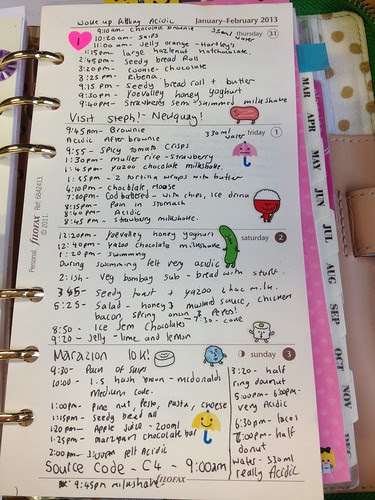 woke up felling Acidic
January-February 2013
thursday 31
9:10am - chocolate brownie
330ml water
10:20am - salas
11:00am - Jelly orange - Hartley's
1:15pm large hazelnut hotchocolate.
2:45pm - Seedy bread Roll
3:20pm - Cookie - chocolate
3:25pm - Ribena
9:15pm - Seedy bread roll + butter
9:30pm - Yoevalley honey yoghurt
9:40pm - Strawberry semi skimmed milkshake
Visit Steph! - Newquay!
9:45am - Brownie
330ml water
friday 1
Acidic After brownie
9:55 - Spicy tomato crisps
1:30pm - muller rice - strawberry
1:45pm - yazoo chocolate milkshake.
1:55pm - 2 tortilla wraps with butter
4:10pm - chocolate mousse
7:00pm Cod battered - with chips, ice drink
8:15pm - Pain in stomach
8:40pm - Acidic
8:45pm - strawbury milkshake.
12:20pm - yoevalley honey yoghurt
saturday 2
12:40pm - yazoo chocolate milkshake
1:20pm - swimming
During swimming felt very acidic
2:15h - veg bombay sub - bread with stuff.
3:45 - Seedy toast + yazoo choc milk.
5:25 - Salad - honey & mustard sauce, chicken
bacon, spring onion & Peters!
7:30 - cake
8:50 - Ice Jem Chocolates
9:20 - Jelly - lime and lemon
Marazion 10K!
sunday 3
9:30 - Pain of
10:00 - 1.5 hash brown - mcdonalds
medium coke.
1:00pm - Pine nut, Pesto, Pasta, cheese
1:15pm - Seedy bread roll
1:20pm - Apple Juice - 200ml
1:25pm - marzipan chocolate bar
2:00pm - 3:00pm felt Acidic
3:20 - half
ring dounut
5:00pm - 6:00pm -
very Acidic
6:30pm - tacos
7:00pm - half
donut
Water - 330ml
really Acidic
Source Code - C4 - 9:00am
9:45pm milkshake
FILOFAX
Personal. filofax Ref 6842413.
© 2011.
MAR
APR
MAY
JUN
JUL
AUG
SEP
OCT
NOV
DEC